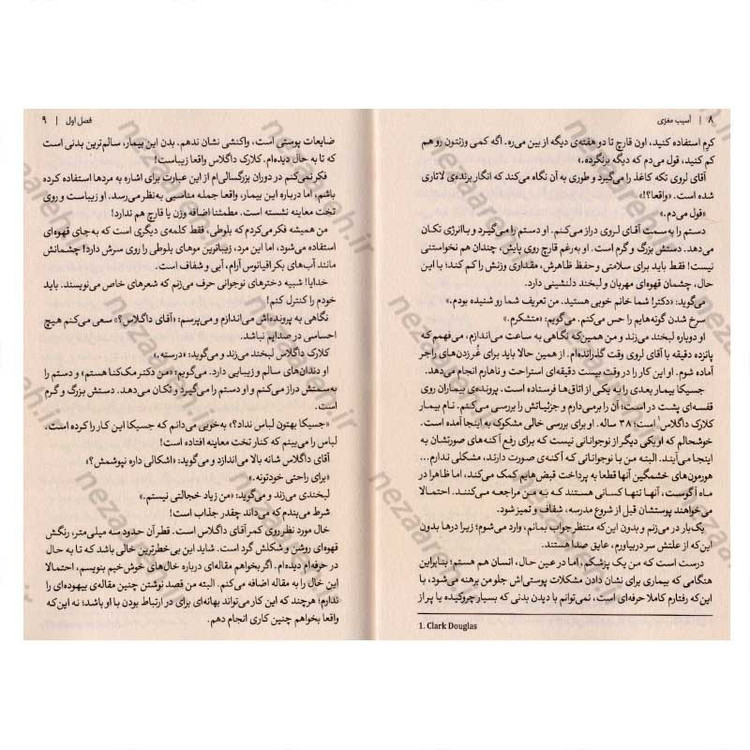 ۸ | آسیب مغزی
کرم استفاده کنید، اون قارچ تا دو هفته‌ی دیگه از بین می‌ره. اگه کمی وزنتون رو هم
کم کنید، قول می‌دم که دیگه برنگرده.»
آقای لروی تکه کاغذ را می‌گیرد و طوری به آن نگاه می‌کند که انگار برنده‌ی لاتاری
شده است. «واقعا؟!»
«قول می‌دم.»
دستم را به‌سمت آقای لروی دراز می‌کنم. او دستم را می‌گیرد و باانرژی تکان
می‌دهد. دستش بزرگ و گرم است. او به‌رغم قارچ روی پایش، چندان هم نخواستنی
نیست! فقط باید برای سلامتی و حفظ ظاهرش، مقداری وزنش را کم کند؛ با این
حال، چشمان قهوه‌ای مهربان و لبخند دلنشینی دارد.
می‌گوید: «دکتر! شما خانم خوبی هستید. من تعریف شما رو شنیده بودم.»
سرخ شدن گونه‌هایم را حس می‌کنم. می‌گویم: «متشکرم.»
او دوباره لبخند می‌زند و من همین‌که نگاهی به ساعت می‌اندازم، می‌فهمم که
پانزده دقیقه با آقای لروی وقت گذرانده‌ام. از همین حالا باید برای غُر زدن‌های راجر
آماده شوم. او این کار را در وقت بیست دقیقه‌ای استراحت و ناهارم انجام می‌دهد.
جسیکا بیمار بعدی را به یکی از اتاق‌ها فرستاده است. پرونده‌ی بیماران روی
قفسه‌ای پشت در است؛ آن را برمی‌دارم و جزئیاتش را بررسی می‌کنم. نام بیمار
کلارک داگلاس¹ است؛ ۳۸ ساله. او برای بررسی خالی مشکوک به اینجا آمده است.
خوشحالم که او یکی دیگر از نوجوانانی نیست که برای رفع آکنه‌های صورتشان به
اینجا می‌آیند. البته من با نوجوانانی که آکنه‌ی صورت دارند، مشکلی ندارم...
هورمون‌های خشمگین آنها قطعا به پرداخت قبض‌هایم کمک می‌کند، اما ظاهرا در
ماه آگوست، آنها تنها کسانی هستند که به من مراجعه می‌کنند. احتمالا
می‌خواهند پوستشان قبل از شروع مدرسه، شفاف و تمیز شود.
یک‌بار در می‌زنم و بدون این‌که منتظر جواب بمانم، وارد می‌شوم؛ زیرا درها بدون
این‌که از علتش سر دربیاورم، عایق صدا هستند.
درست است که من یک پزشکم، اما در عین حال، انسان هم هستم؛ بنابراین
هنگامی که بیماری برای نشان دادن مشکلات پوستی‌اش جلو من برهنه می‌شود، با
این‌که رفتارم کاملا حرفه‌ای است، نمی‌توانم با دیدن بدنی که بسیار چروکیده یا پر از
1. Clark Douglas
فصل اول | ۹
ضایعات پوستی است، واکنشی نشان ندهم. بدن این بیمار، سالم‌ترین بدنی است
که تا به حال دیده‌ام. کلارک داگلاس واقعا زیباست!
فکر نمی‌کنم در دوران بزرگسالی‌ام از این عبارت برای اشاره به مردها استفاده کرده
باشم، اما درباره این بیمار، واقعا جمله مناسبی به‌نظر می‌رسد. او زیباست و روی
تخت معاینه نشسته است. مطمئنا اضافه وزن یا قارچ هم ندارد!
من همیشه فکر می‌کردم که بلوطی، فقط کلمه‌ی دیگری است که به‌جای قهوه‌ای
استفاده می‌شود، اما این مرد، زیباترین موهای بلوطی را روی سرش دارد! چشمانش
مانند آب‌های بکر اقیانوس آرام، آبی و شفاف است.
خدایا! شبیه دخترهای نوجوانی حرف می‌زنم که شعرهای خاص می‌نویسند. باید
خودم را کنترل کنم!
نگاهی به پرونده‌اش می‌اندازم و می‌پرسم: «آقای داگلاس؟» سعی می‌کنم هیچ
احساسی در صدایم نباشد.
کلارک داگلاس لبخند می‌زند و می‌گوید: «درسته.»
او دندان‌های سالم و زیبایی دارد. می‌گویم: «من دکتر مک‌کنا هستم» و دستم را
به‌سمتش دراز می‌کنم و او دستم را می‌گیرد و تکان می‌دهد. دستش بزرگ و گرم
است.
«جسیکا بهتون لباس نداد؟» به‌خوبی می‌دانم که جسیکا این کار را کرده است،
لباس را می‌بینم که کنار تخت معاینه افتاده است!
آقای داگلاس شانه بالا می‌اندازد و می‌گوید: «اشکالی داره نپوشمش؟»
«برای راحتی خودتونه.»
لبخندی می‌زند و می‌گوید: «من زیاد خجالتی نیستم.»
شرط می‌بندم که می‌داند چقدر جذاب است!
خال مورد نظر روی کمر آقای داگلاس است. قطر آن حدود سه میلی‌متر، رنگش
قهوه‌ای روشن و شکلش گرد است. شاید این بی‌خطرترین خالی باشد که تا به حال
در حرفه‌ام دیده‌ام. اگر بخواهم مقاله‌ای درباره خال‌های خوش‌خیم بنویسم، احتمالا
این خال را به مقاله اضافه می‌کنم. البته من قصد نوشتن چنین مقاله‌ی بیهوده‌ای را
ندارم؛ هرچند که این کار می‌تواند بهانه‌ای برای در ارتباط بودن با او باشد؛ نه این‌که
واقعا بخواهم چنین کاری انجام دهم.
nezaareh.ir